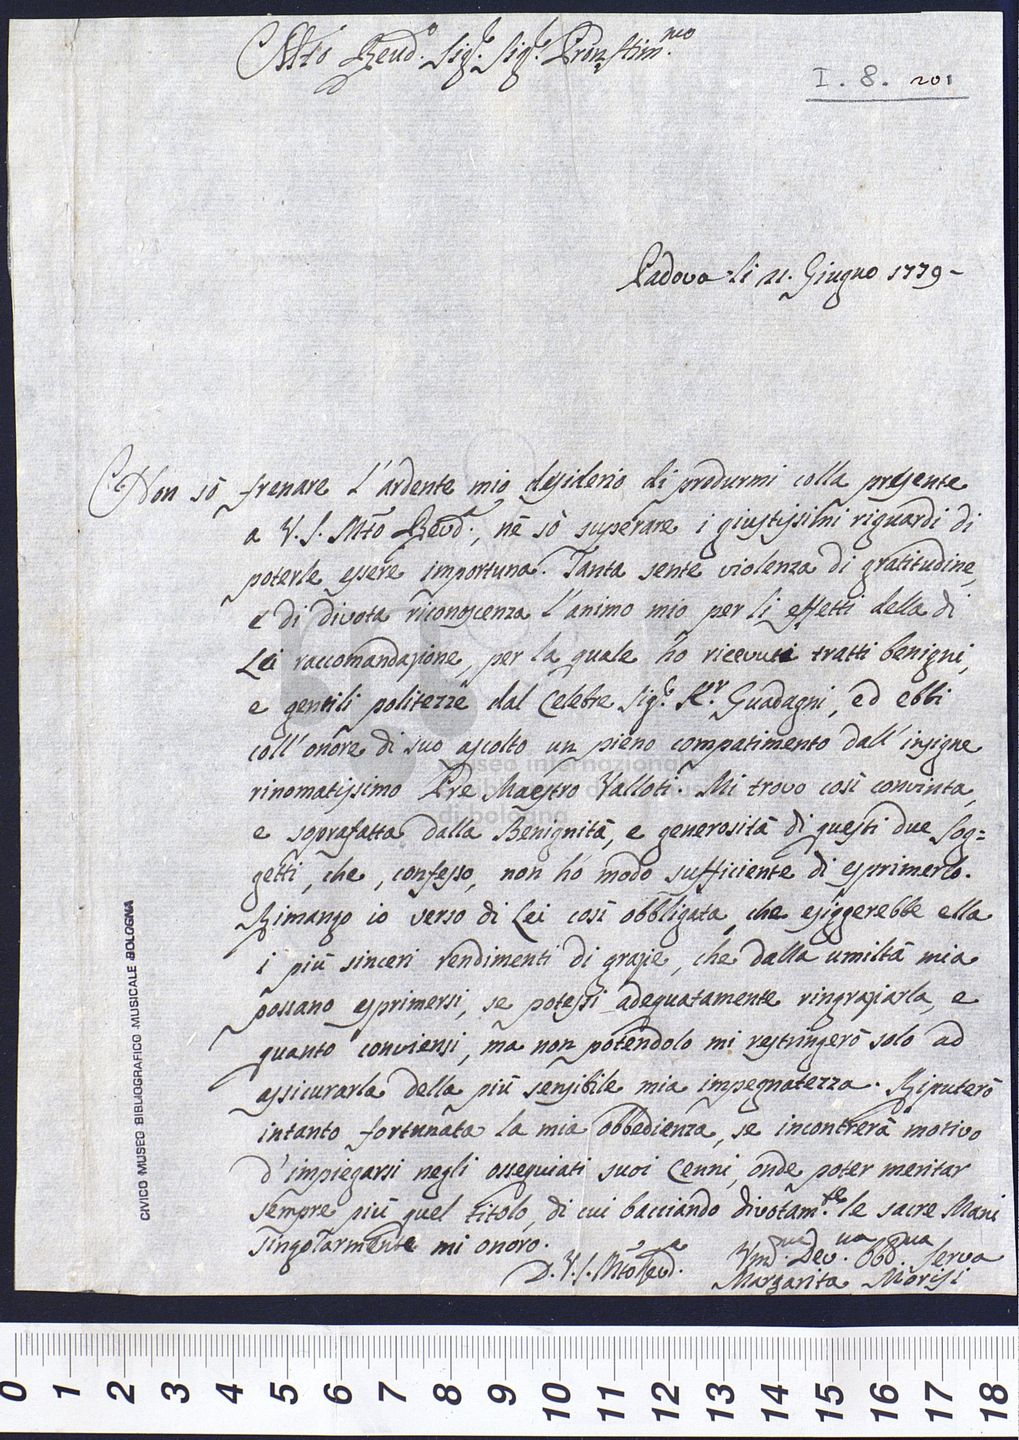 Mto Revdo. Sigr. Sigr. Pron Stimmo
I. 8. 201
Padova li 21. Giugno 1779-
Non sò frenare l'ardente mio desiderio di produrmi colla presente
a V. S. Mto Revda., nè sò superare i giustissimi riguardi di
poterle essere importuna. Tanta sente violenza di gratitudine,
e di divota riconoscenza l'animo mio per li effetti della di
Lei raccomandazione, per la quale hò ricevuti tratti benigni,
e gentili politezze dal celebre Sigr. Kr. Guadagni, ed ebbi
coll'onore di suo ascolto un pieno compatimento dall'insigne
rinomatissimo Pre Maestro Valloti. Mi trovo così convinta,
e soprafatta dalla Benignità, e generosità di questi due Sog=
getti, che, confesso, non hò modo sufficiente di esprimerlo.
Rimango io verso di Lei così obbligata, che esiggerebbe ella
i più sinceri rendimenti di grazie, che dalla umiltà mia
possano esprimersi, se potessi adeguatamente ringraziarla, e
quanto conviensi, ma non potendolo mi restringerò solo ad
assicurarla della più sensibile mia impegnatezza. Riputerò
intanto fortunata la mia obbedienza, se incontrerà motivo
d'impiegarsi negli ossequiati suoi Cenni, onde poter meritar
sempre più quel titolo, di cui bacciando divotamte. le sacre Mani
singolarmente mi onoro.
D. V. S. Mto Revda. Vmã. Devua. Obbua. Serva
Margarita Morisi
CIVICO MUSEO BIBLIOGRAFICO MUSICALE BOLOGNA
museo internazionale
e biblioteca della musica
di bologna
0 1 2 3 4 5 6 7 8 9 10 11 12 13 14 15 16 17 18